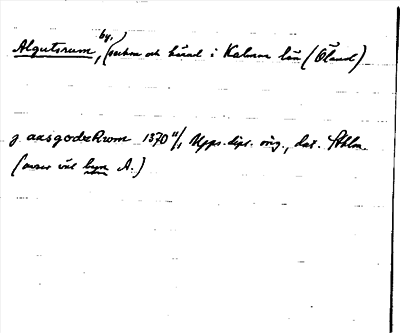 Algutsrum, by, (socken och härad i Kalmar län (Öland)
j aasgodzRwm 1370 11/1 Upps. dipl. orig., dat. Sthlm
(avser väl byn A.)